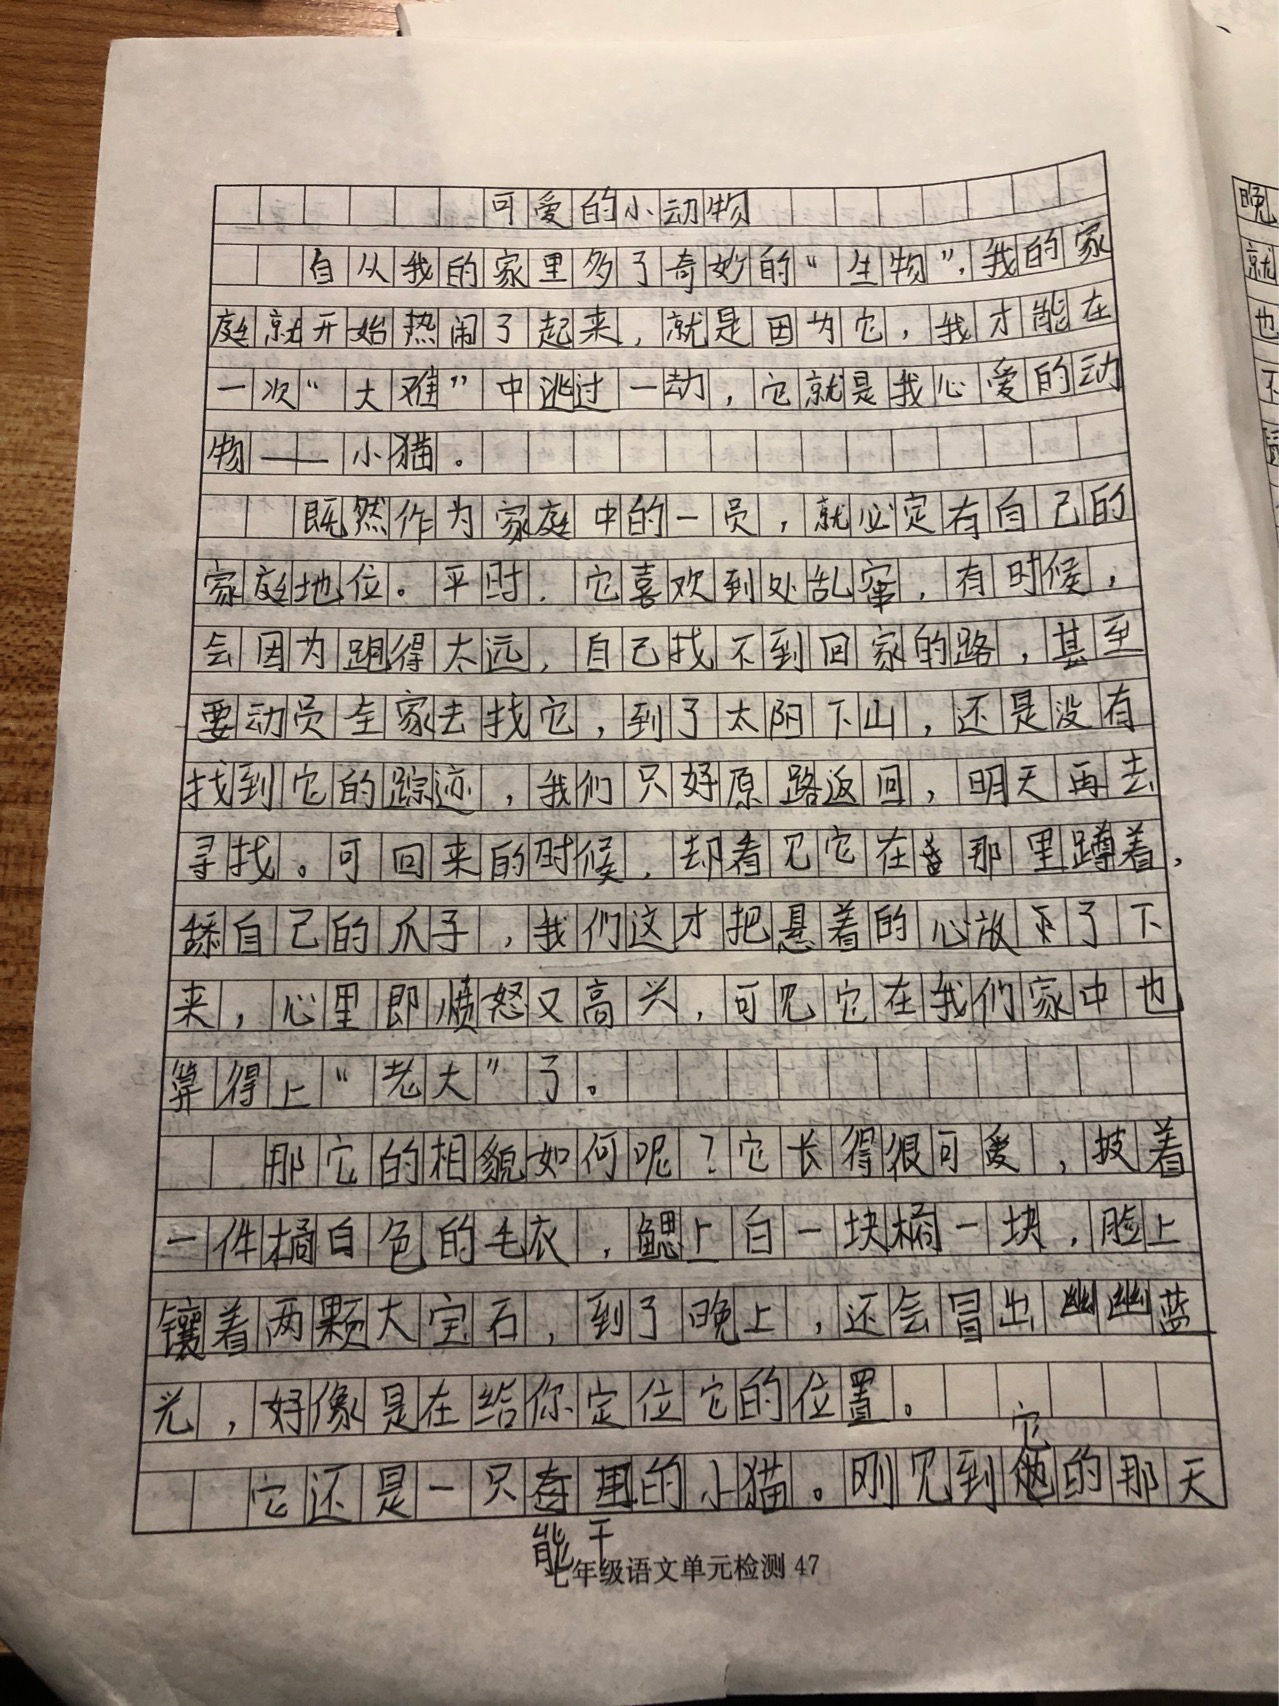 可爱的小动物
自从我的家里多了奇妙的“生物”，我的家
庭就开始热闹了起来，就是因为它，我才能在
一次“大难”中逃过一劫，它就是我心爱的动
物——小猫。
既然作为家庭中的一员，就必定有自己的
家庭地位。平时，它喜欢到处乱窜，有时候，
会因为跑得太远，自己找不到回家的路，甚至
要动员全家去找它，到了太阳下山，还是没有
找到它的踪迹，我们只好原路返回，明天再去
寻找。可回来的时候，却看见它在那里蹲着，
舔自己的爪子，我们这才把悬着的心放下了下
来，心里即愤怒又高兴，可见它在我们家中也
算得上“老大”了。
那它的相貌如何呢？它长得很可爱，披着
一件橘白色的毛衣，鳃上白一块橘一块，脸上
镶着两颗大宝石，到了晚上，还会冒出幽幽蓝
光，好像是在给你定位它的位置。
它还是一只能干的小猫。刚见到它的那天
七年级语文单元检测 47
晚
就
也
不